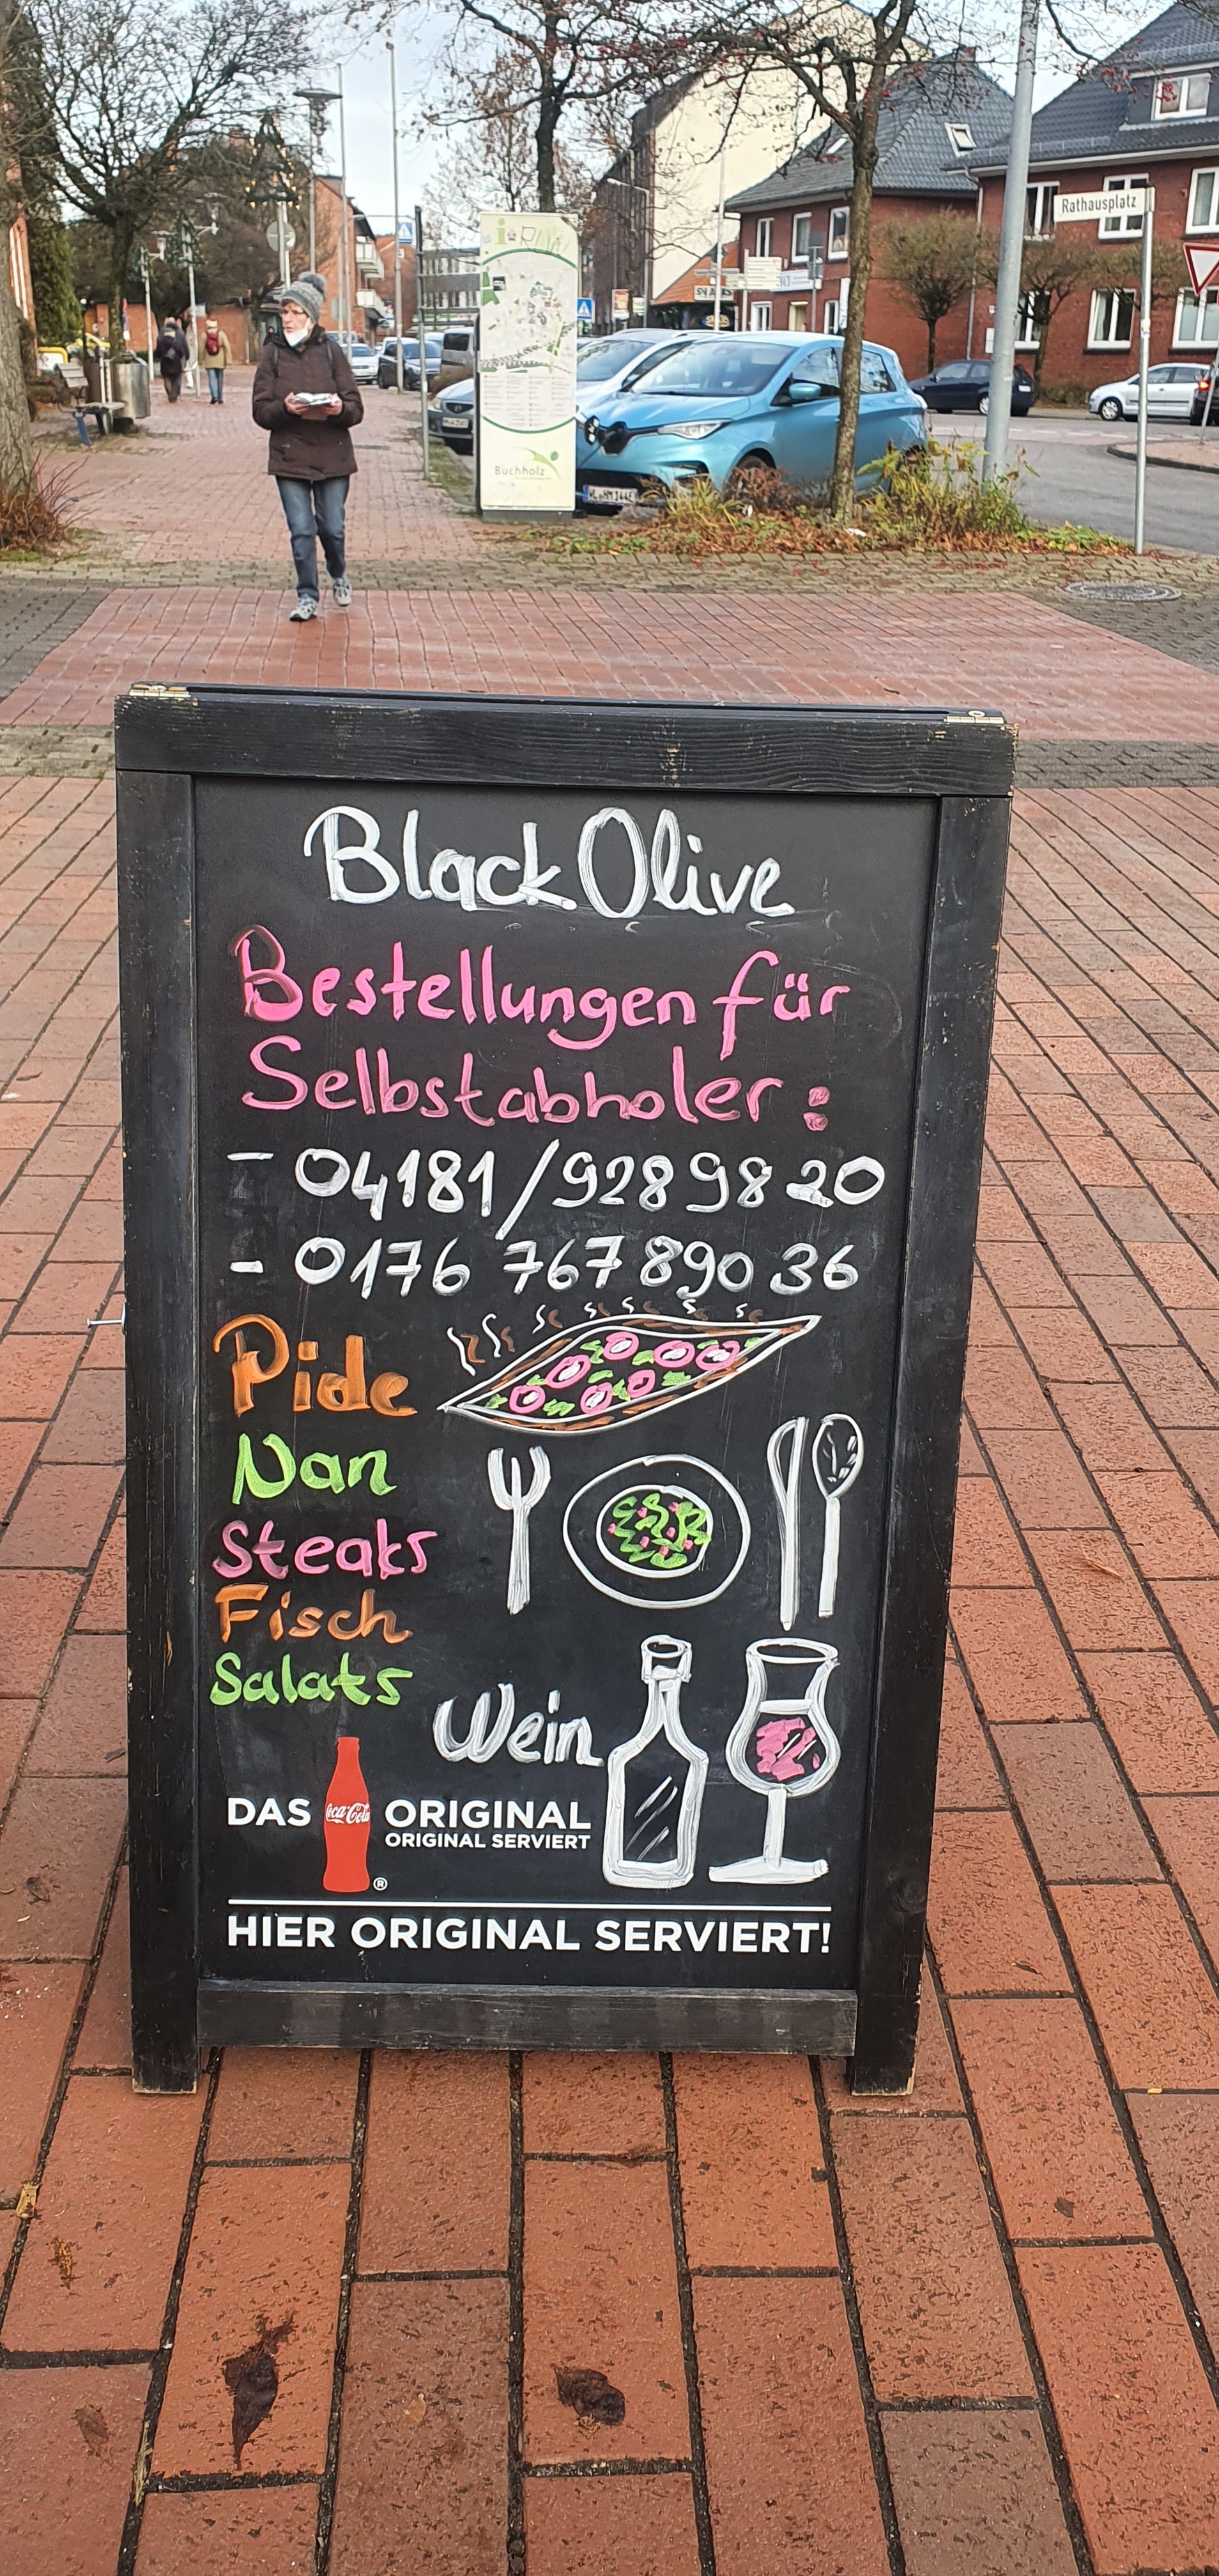 Rathausplatz
Buchholz
Black Olive
Bestellungen für
Selbstabholer:
- 04181/928 98 20
- 0176 767 890 36
Pide
Nan
Steaks
Fisch
Salats
Wein
DAS Coca-Cola ORIGINAL
ORIGINAL SERVIERT
®
HIER ORIGINAL SERVIERT!